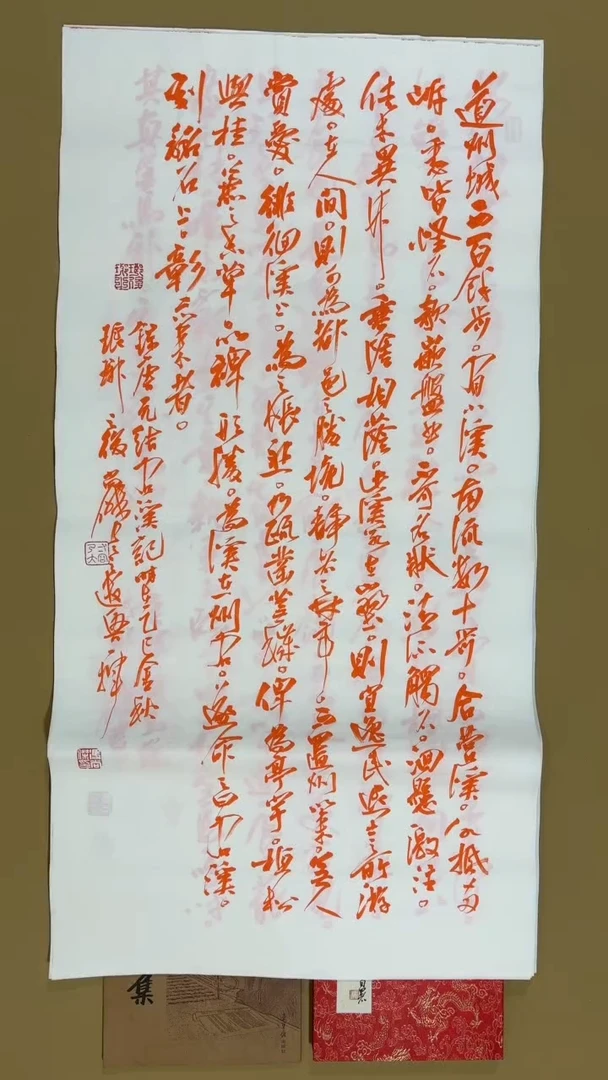 道州城西百餘步。有小溪。南流數十步。合營溪。水抵兩
岸。悉皆怪石。欹嵌盤屈。不可名狀。清流觸石。洄懸激注。
佳木異竹。垂陰相蔭。此溪若在山野。則宜逸民退士之所游
處。在人間。則可為都邑之勝境。靜者之林亭。而置州以來。無人
賞愛。徘徊溪上。為之悵然。乃疏鑿蕪穢。俾為亭宇。植松
與桂。兼之香草。以裨形勝。為溪在州右。遂命之曰右溪。
刻銘石上。彰示來者。
錄唐元結右溪記時在乙巳金秋
瑯琊
集